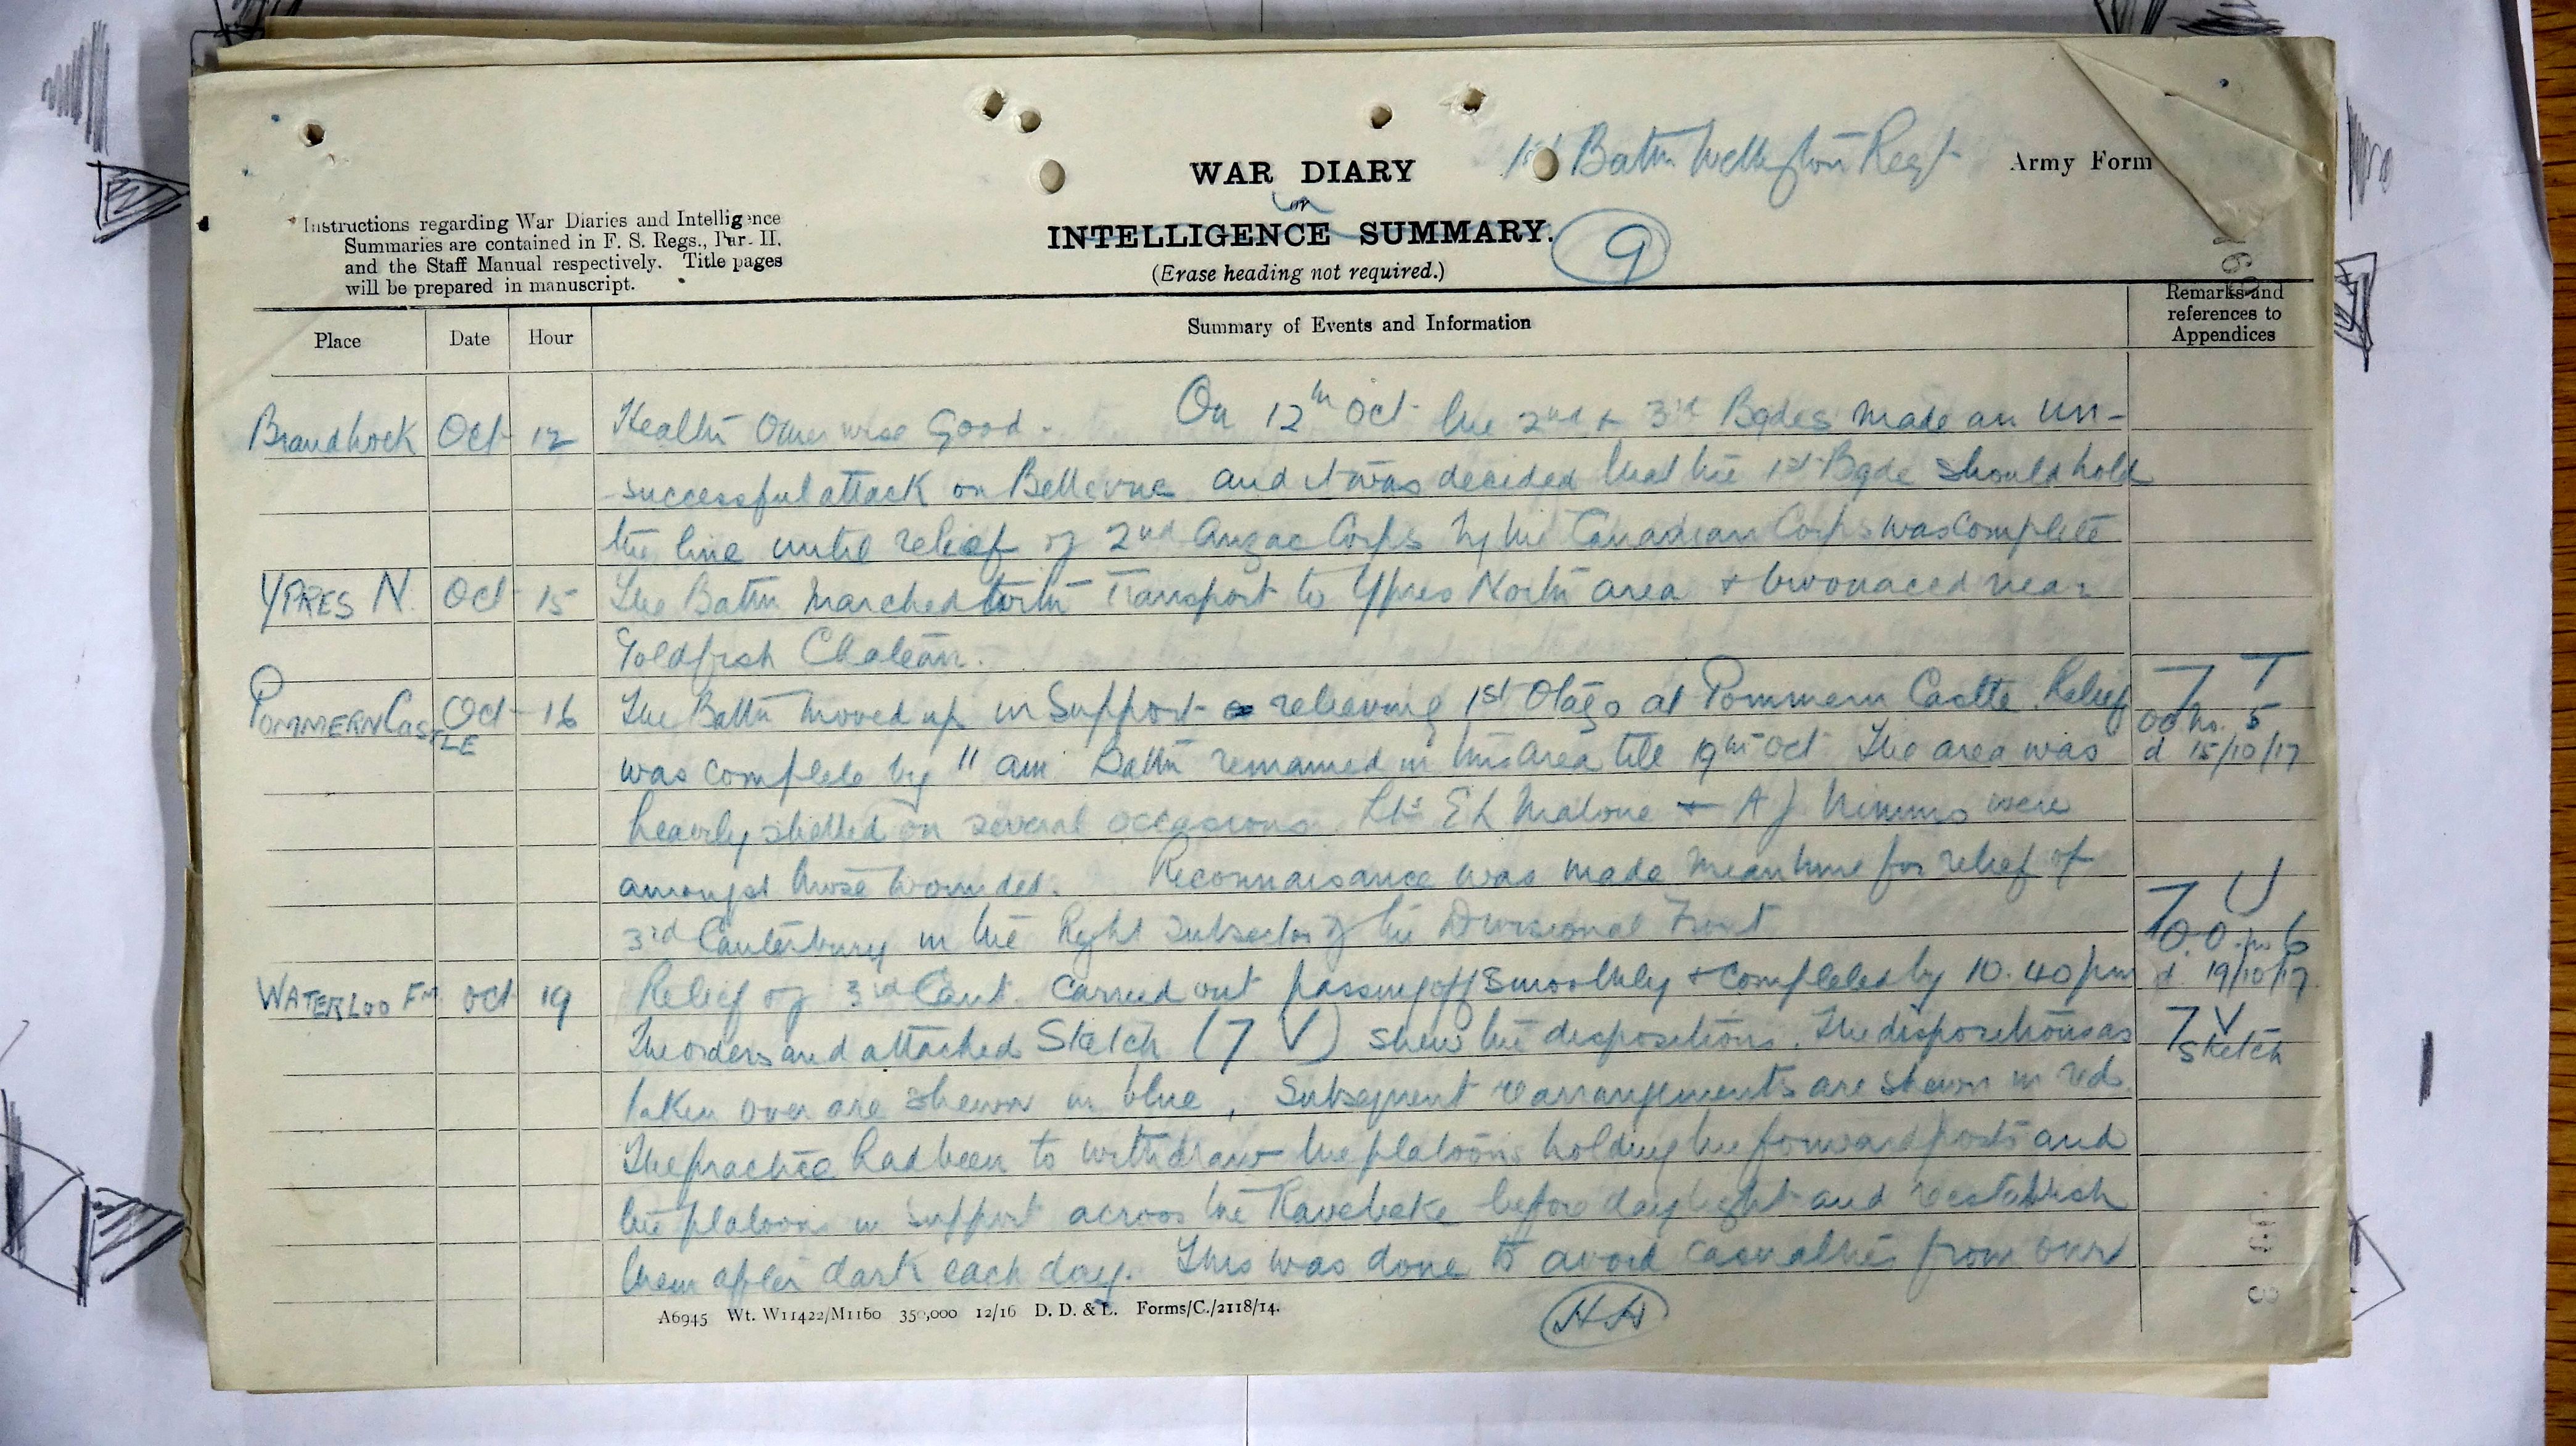 1st Battn Wellington Regt
WAR DIARY
Army Form
or
INTELLIGENCE SUMMARY.
9
(Erase heading not required.)
Instructions regarding War Diaries and Intelligence
Summaries are contained in F. S. Regs., Par. II.
and the Staff Manual respectively. Title pages
will be prepared in manuscript.
Place Date Hour Summary of Events and Information Remarks and references to Appendices
Brandhoek Oct 12 Health Otherwise Good. On 12th Oct the 2nd + 3rd Bgdes made an un-
successful attack on Bellevue and it was decided that the 1st Bgde should hold
the line until relief of 2nd Anzac Corps by the Canadian Corps was complete
YPRES N. Oct 15 The Battn Marched with Transport to Ypres North area + bivouaced near
Goldfish Chateau.
POMMERN CASTLE Oct 16 The Battn moved up in Support relieving 1st Otago at Pommern Castle. Relief 7 T
OO No. 5
was complete by 11 am Battn remained in this area till 19th Oct The area was d 15/10/17
heavily shelled on several occasions. Lts E L Malone + A J Nimmo were
amongst those wounded. Reconnaisance was made meantime for relief of
3rd Canterbury in the Right Subsector of the Divisional Front 7 U
O.O. No 6
WATERLOO FM Oct 19 Relief of 3rd Cant. Carried out passing off Smoothly + Completed by 10.40 pm d 19/10/17
The orders and attached Sketch (7 V) shew the dispositions. The dispositions as 7 V
Sketch
taken over are shewn in blue, Subsequent rearrangements are shewn in red.
The practice had been to withdraw the platoons holding the forward posts and
the platoons in support across the Ravebeke before daylight and reestablish
them after dark each day. This was done to avoid casualties from our
A6945 Wt. W11422/M1160 350,000 12/16 D. D. & L. Forms/C./2118/14.